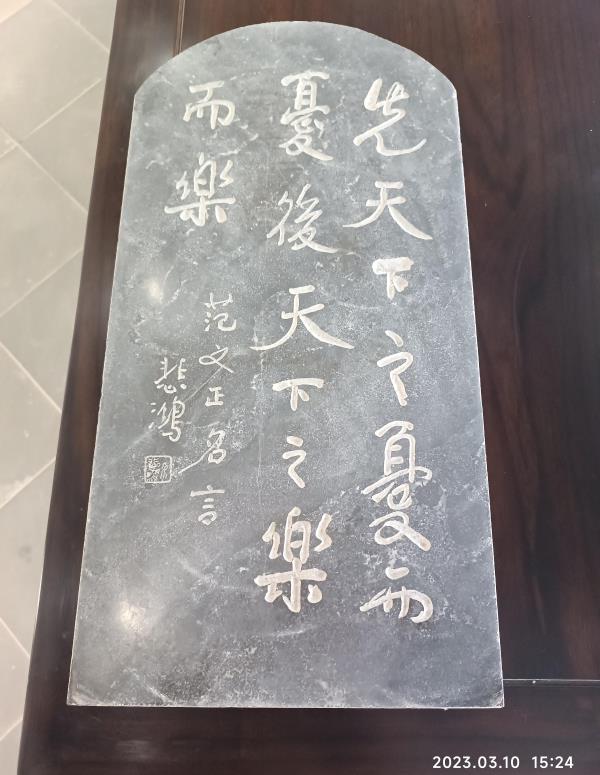 先天下之憂而
憂後天下之樂
而樂
范文正名言
悲鴻
2023.03.10 15:24